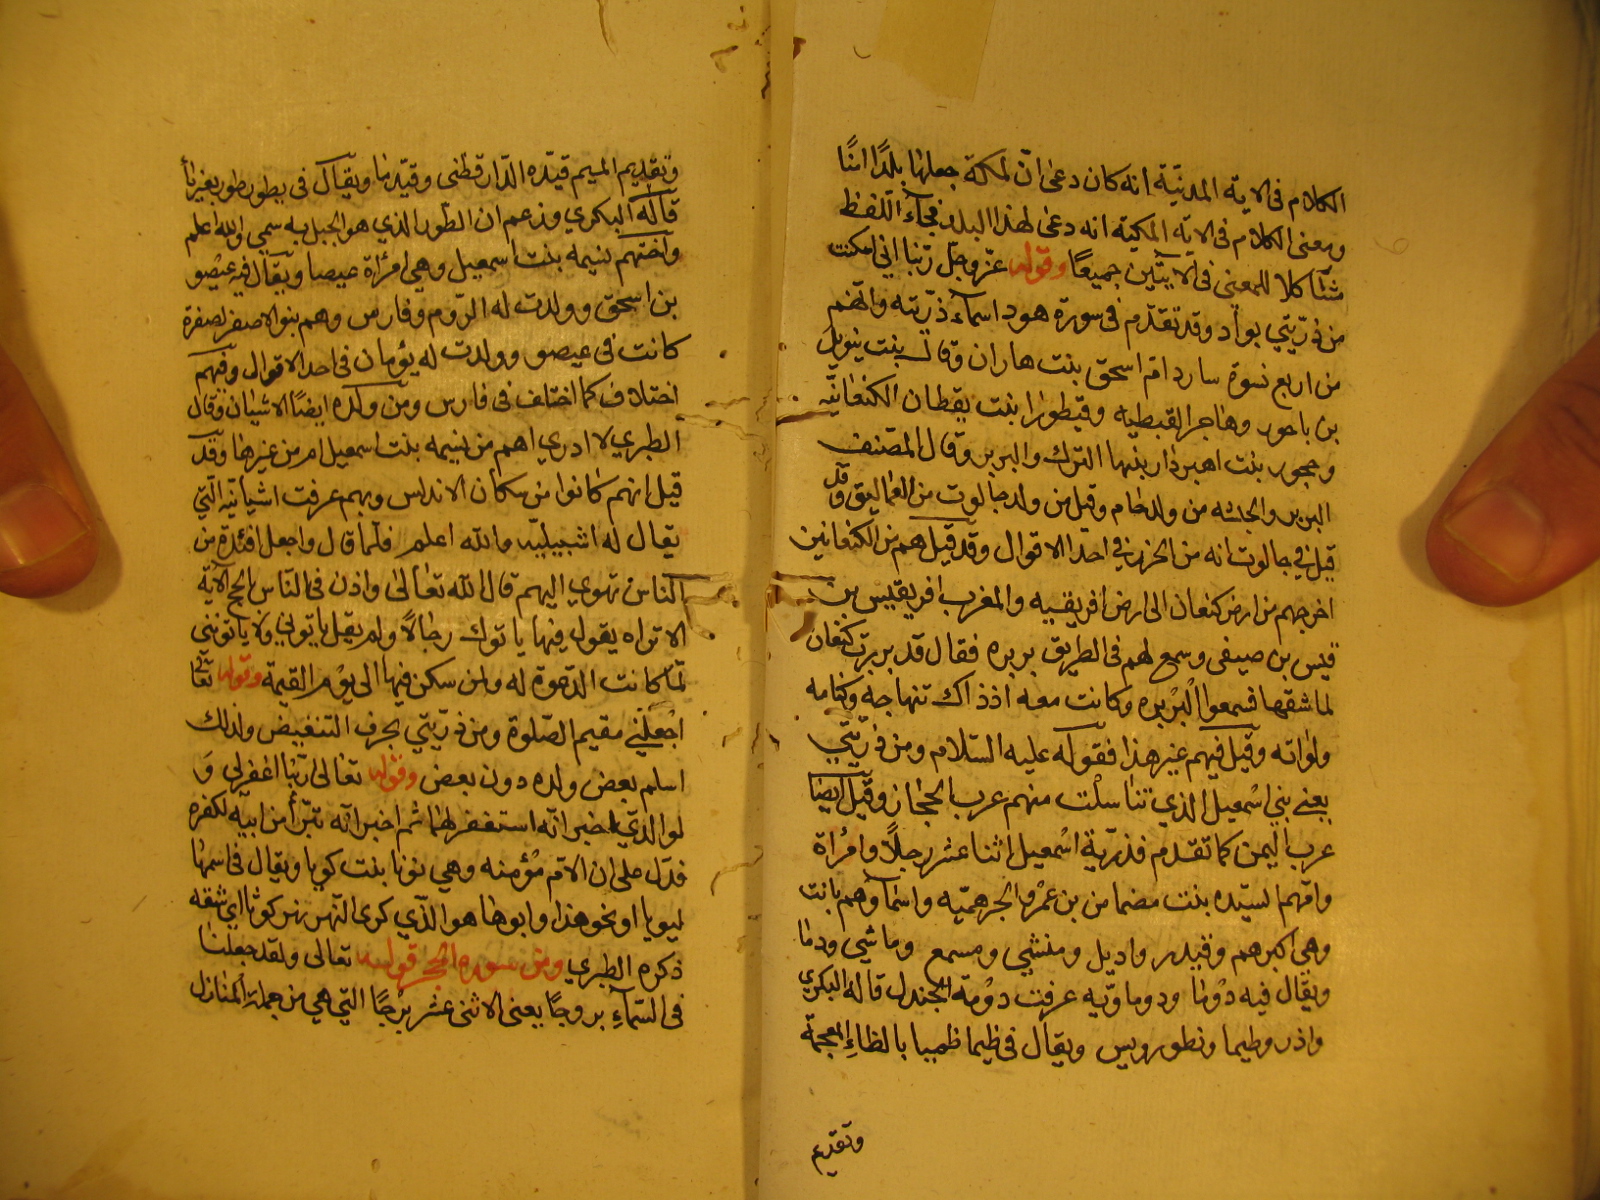 الكلام في الاية المدنيّة انه كان دعى انّ لمكة جعلها بلدًا امنًا
ومعنى الكلام في الاية المكية انه دعى لهذا البلد فجآء اللّفظ
مشاكلا للمعنى في الايتين جميعًا وقوله عزّ وجلّ ربّنا اني اسكنت
من ذرّيتي بواد وقد تقدّم في سورة هود اسمآء ذرّيته وانهم
من اربع نسوة سارة امّ اسحق بنت هاران وقال بنت بتويل
بن ناحور وهاجر القبطيه وقطورا بنت يقطان الكنعانيّه
وحجور بنت اهير ذار بنيها الترك والبربر وقال المصنف
البربر والحبشه من ولد حام وقيل من ولد جالوت من العماليق وقد
قيل في جالوت انه من الخزر في احد الاقوال وقد قيل هم من الكنعانين
اخرجهم من ارض كنعان الى ارض افريقيه والمغرب افريقيس بن
قيس بن صيفى وسمع لهم في الطريق بربره فقال قد بربرت كنعان
لما شقها فسمعوا البْربره وكانت معه اذ ذاك تنهاجه وكتامه
ولواته وقيل فيهم غير هذا فقوله عليه السّلام ومن ذرّيّتي
يعني بني اسْمعيل الذي تناسلت منهم عرب الحجاز وقيل ايضا
عرب اليمن كما تقدم فذرّية اسْمعيل اثنا عشر رجلاً وامْراة
وامّهم السيّده بنت مضماض بن عمْرو الجرهميّه واسمآوهم نابت
وهى اكبرهم وقيدر واديل ومنشي ومسمع وماشي ودما
ويقال فيه دوْما ودوماويّه عرفت دوْمة الجندل قاله البكري
واذر وطيما ونطور ويس ويقال في ظيما ظميا بالظاءِ المعجمة
وتقديم
وتقديم الميم قيّده الدّار قطنى وقيّدها ويقال فى يطور طور بغير يأ
قاله البكري وزعم ان الطّور الذي هو الجبل به سمي والله اعلم
واختهم نسيمه بنت اسمعيل وهى امرأة عيصا ويقال فيه عيْصو
بن اسحق وولدت له الرّوم وفارس وهم بنوا الاصفر لصفرة
كانت فى عيصو وولدت له يؤمان فى احد الاقوال وفيهم
اختلاف كما اختلف فى فارس ومن ولده ايضًا الاشبان وقال
الطبري لا ادري اهم من نسيمه بنت اسمعيل ام من غيرها وقد
قيل انهم كانوا من سكان الاندلس وبهم عرفت اشبانيّه الّتي
يقال له اشبيليّه والله اعلم فلما قال واجعل افئدة من
الناس تهوي اليهم قال الله تعالى واذن فى النّاس بالحج الاّية
الا تراه يقول فيها ياتوك رجالاً ولم يقل ياتوني ولا ياتوننى
لمّا كانت الدعوة له ولمن سكن فيها الى يوْم القيمة وقوله تعالى
اجْعلنْي مقيم الصّلوة ومن ذرّيّتي بحرف التبعيض ولذلك
اسلم بعض ولده دون بعض وقوله تعالى ربّنا اغفر لي وَ
لوالديّ اخبر انّه استغفر لهما ثم اخبر انّه تبرّأ من ابيه لكفره
فدّل على ان الامّ مؤمنه وهي نونا بنت كوبا ويقال فى اسمها
ليوبا او نحو هذا وابوها هو الذّي كرى النّهر نهر كوثا اي شقه
ذكره الطبري ومن سورة الحجر قوله تعالى ولقد جعلنا
فى السّمآءِ بروجًا يعنى الاثنى عشر برْجًا التّي هي من جملة المنازل